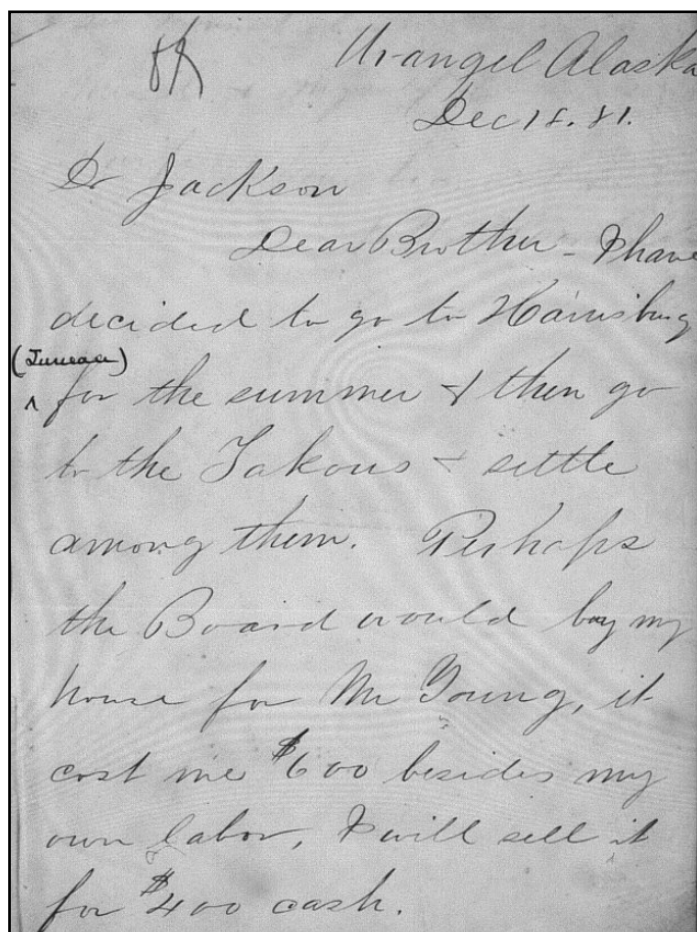 Wrangel Alaska
Dec 18. 81.
Dr Jackson
Dear Brother - I have
decided to go to Harrisburg
(Juneau)
^ for the summer & then go
to the Takous & settle
among them. Perhaps
the Board would buy my
house for Mr Young, it
cost me $600 besides my
own labor, I will sell it
for $400 cash.